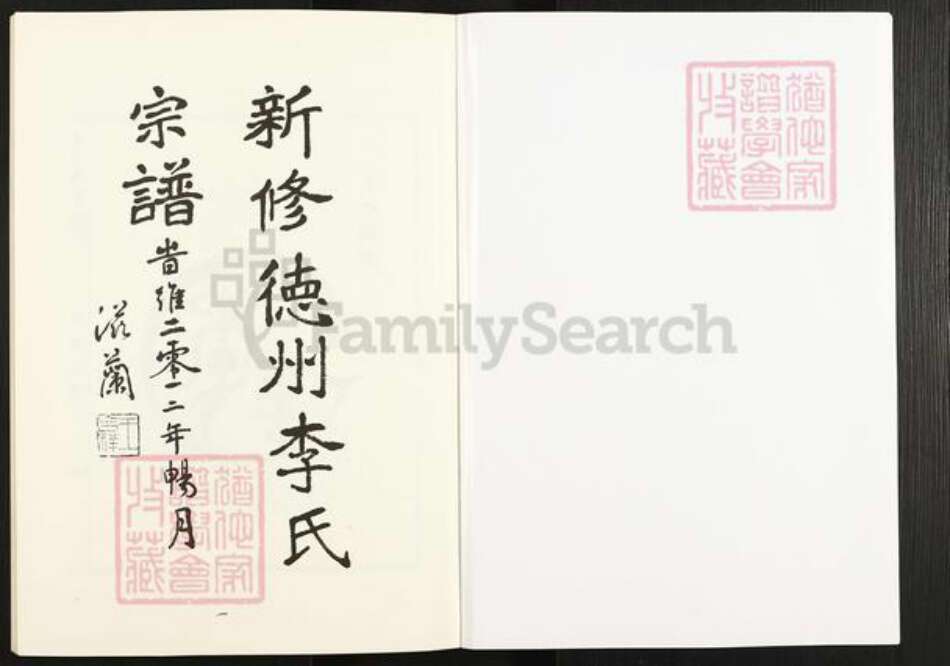 新修德州李氏
宗譜
岁維二零一二年暢月
滋蘭
猶他家
譜學會
收藏
猶他家
譜學會
收藏
FamilySearch